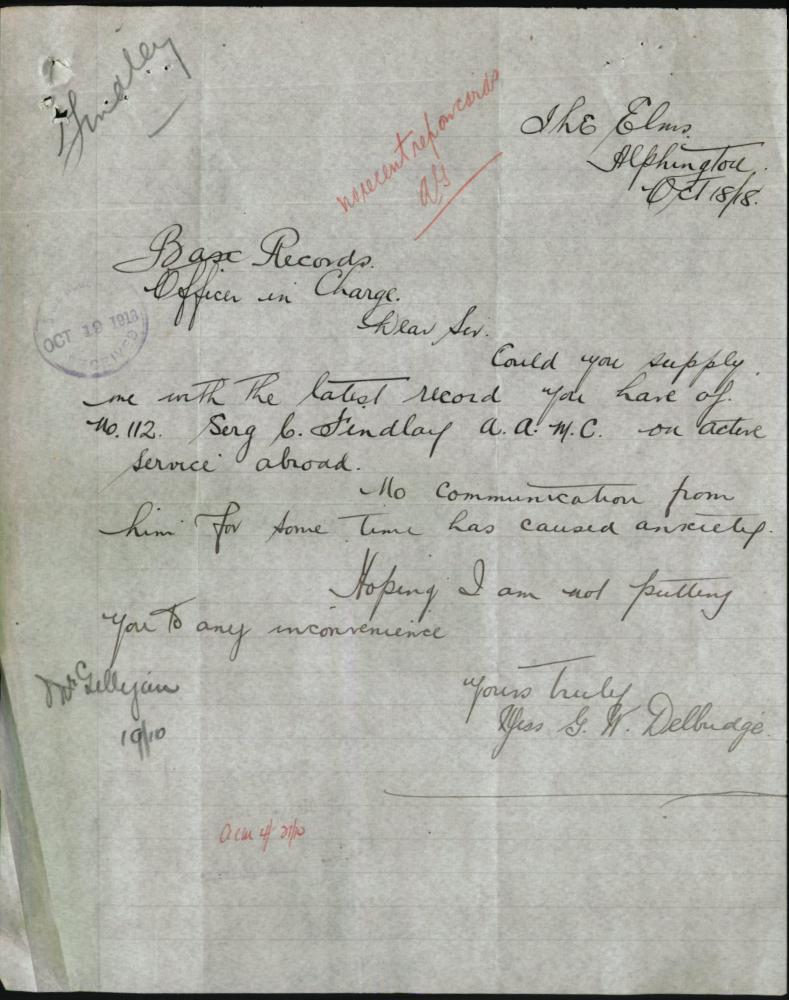 Findley
no recent rep on cards
The Elms.
Alphington.
Oct 18/18.
Base Records.
Officer in Charge.
OCT 19 1918
RECEIVED
Dear Sir.
Could you supply
me with the latest record you have of.
No. 112. Serg C. Findlay A.A.M.C. on active
service abroad.
No communication from
him for some time has caused anxiety.
Hoping I am not putting
you to any inconvenience
Yours truly
Miss G. W. Delbridge.
19/10